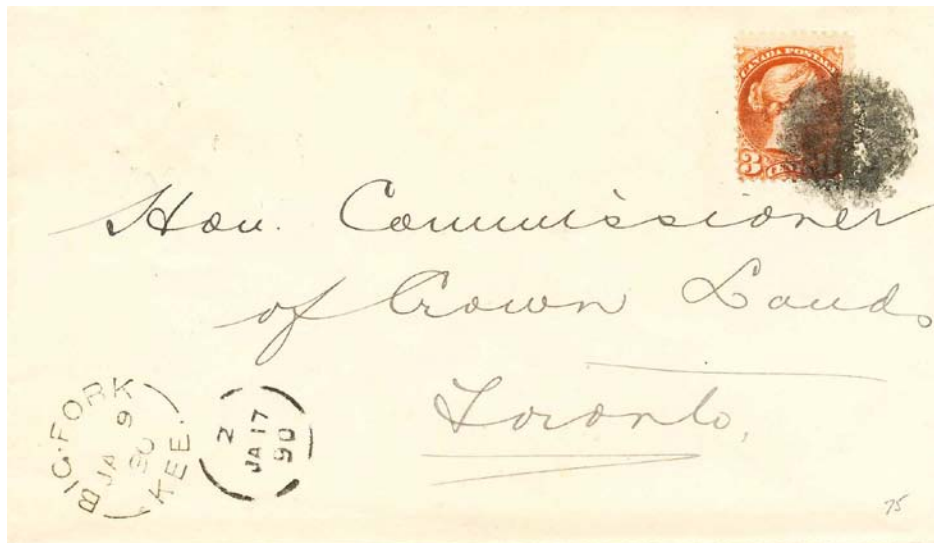 CANADA POSTAGE
3 CENTS
Hon. Commissioner
of Crown Lands
Toronto,
BIG·FORK
JA 9
90
KEE·
2
JA 17
90
75